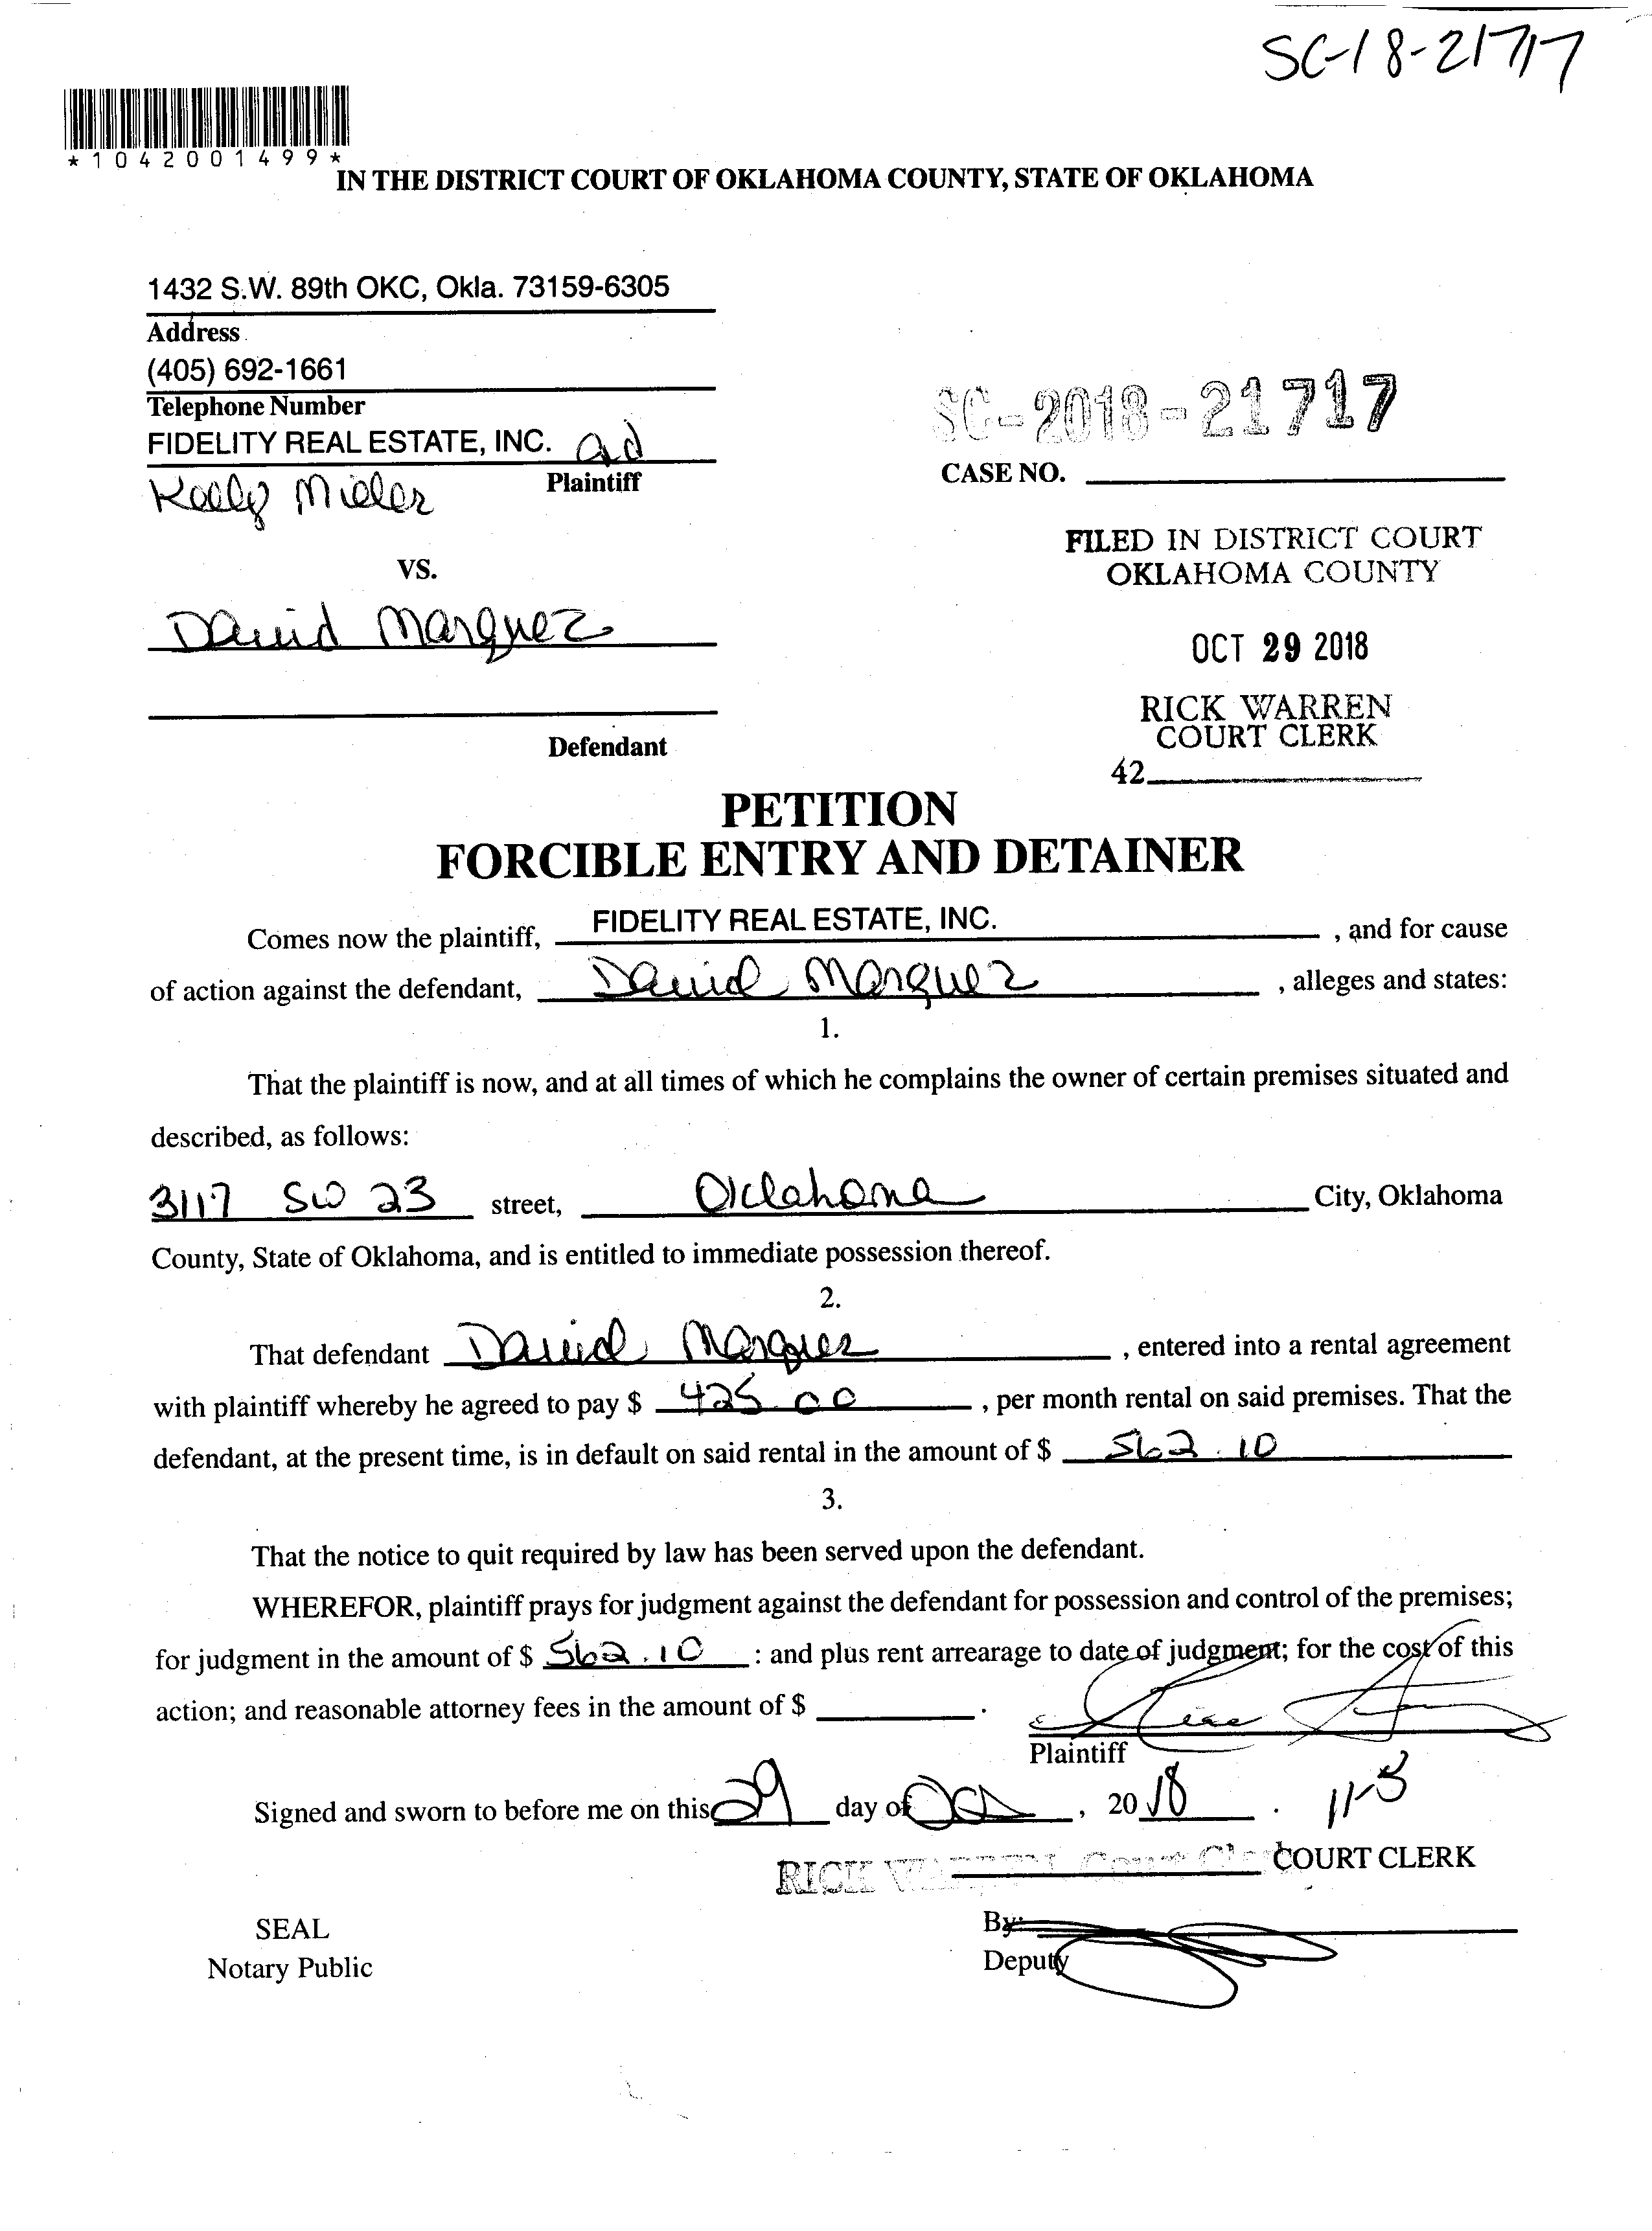 SC-18-21717
*1042001499*
IN THE DISTRICT COURT OF OKLAHOMA COUNTY, STATE OF OKLAHOMA
1432 S.W. 89th OKC, Okla. 73159-6305
Address
(405) 692-1661
Telephone Number
FIDELITY REAL ESTATE, INC. ad
Kelly Miller Plaintiff
SC-2018-21717
CASE NO.
FILED IN DISTRICT COURT
OKLAHOMA COUNTY
VS.
David Marquez
OCT 29 2018
RICK WARREN
COURT CLERK
42
Defendant
PETITION
FORCIBLE ENTRY AND DETAINER
Comes now the plaintiff, FIDELITY REAL ESTATE, INC. , and for cause
of action against the defendant, David Marquez , alleges and states:
1.
That the plaintiff is now, and at all times of which he complains the owner of certain premises situated and
described, as follows:
3117 SW 23 street, Oklahoma City, Oklahoma
County, State of Oklahoma, and is entitled to immediate possession thereof.
2.
That defendant David Marquez , entered into a rental agreement
with plaintiff whereby he agreed to pay $ 425.00 , per month rental on said premises. That the
defendant, at the present time, is in default on said rental in the amount of $ 562.10
3.
That the notice to quit required by law has been served upon the defendant.
WHEREFOR, plaintiff prays for judgment against the defendant for possession and control of the premises;
for judgment in the amount of $ 562.10 : and plus rent arrearage to date of judgment; for the cost of this
action; and reasonable attorney fees in the amount of $ .
Plaintiff
Signed and sworn to before me on this 29 day of Oct , 2018 . 11-5
RICK WARREN Court Clerk COURT CLERK
SEAL
Notary Public
By:
Deputy